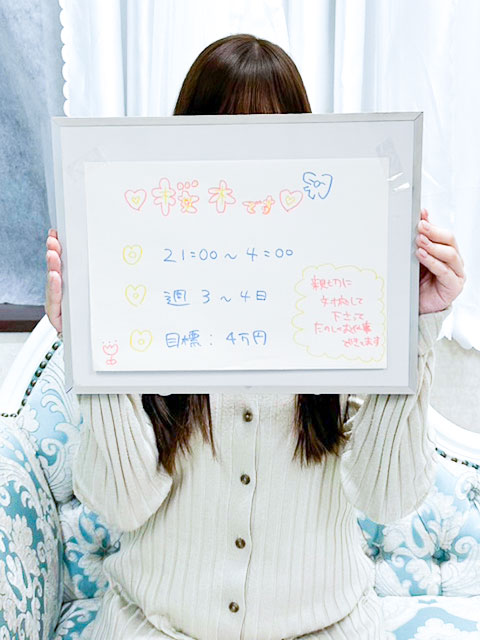 桜木です
21:00～4:00
週 3～4日
目標: 4万円
親切に
対応して
下さって
たのしくお仕事
できてます